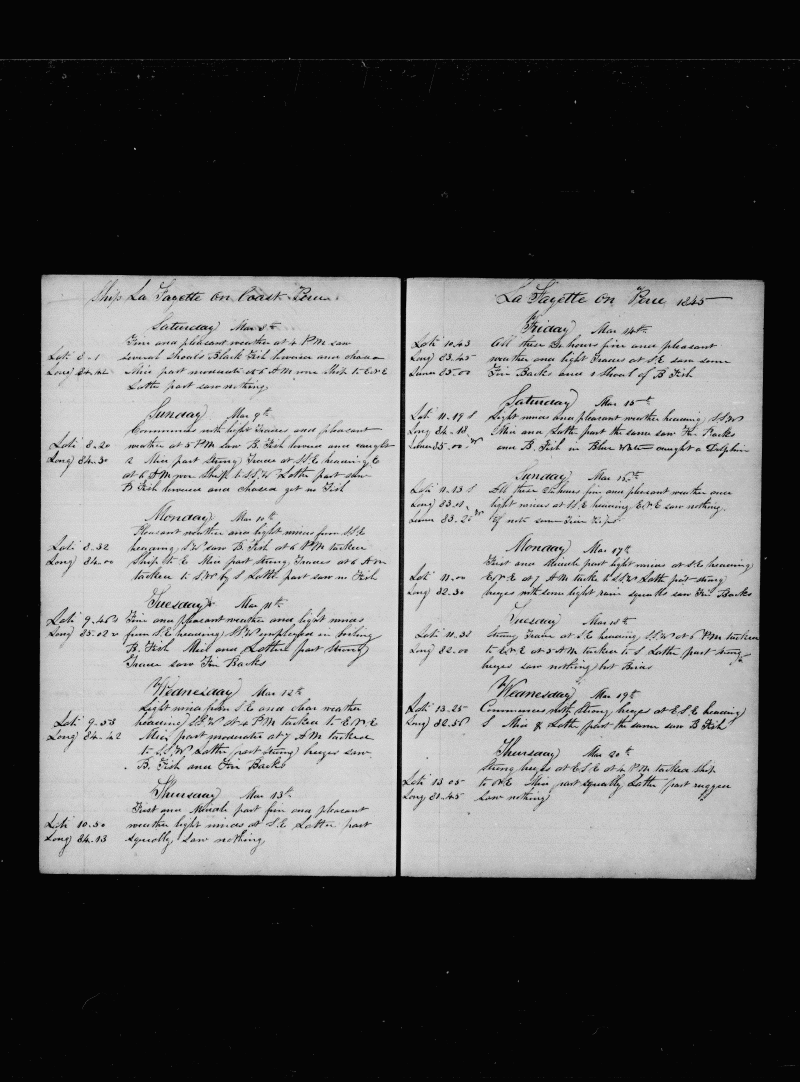 Ship La Fayette on Coast Peru
Saturday Mar 8th
Fine and pleasant weather at 4 P M saw
Lati 8-1 several Shoals Black Fish lowered and chased
Long 84-42 Mid part moderate at 6 A M wore Ship to E N E
Latter part saw nothing
Sunday Mar 9th
Commences with light Trades and pleasant
Lati 8-20 weather at 5 P M saw B. Fish lowered and caught
Long 84-30 2 Mid part strong Trades at S.E heading E
at 6 A M wore Ship to S.S.W Latter part saw
B Fish lowered and chased got no Fish
Monday Mar 10th
Pleasant weather and light winds from S.E
Lati 8-32 heading S.W saw B Fish at 6 P M tacked
Long 84-00 Ship to E Mid part strong Trades at 6 A M
tacked to S.W by S Latter part saw no Fish
Tuesday Mar 11th
Lati 9-46 S Fine and pleasant weather and light winds
Long 85-02 W from S.E heading S.S.W employed in boiling
B Fish Mid and Latter part strong
Trade saw Fin Backs
Wednesday Mar 12th
Light winds from S E and clear weather
Lati 9-53 heading S.S.W at 4 P M tacked to E N E
Long 84-42 Mid part moderate at 7 A M tacked
to S.S.W Latter part strong breezes saw
B. Fish and Fin Backs
Thursday Mar 13th
First and Middle part fine and pleasant
Lati 10-50 weather light winds at S.E Latter part
Long 84-13 squally saw nothing
La Fayette on Peru 1845
Friday Mar 14th
Lati 10-43 All these 24 hours fine and pleasant
Long 83-45 weather and light Trades at S.E saw some
Lunar 85-00 Fin Backs and 1 Shoal of B Fish
Saturday Mar 15th
Lati 11-19 S Light winds and pleasant weather heading S.S.W
Long 84-18 Mid and Latter part the same saw Fin Backs
Lunar 85-00 W and B. Fish in Blue Water caught a Dolphin
Sunday Mar 16th
Lati 11-13 S All these 24 hours fine and pleasant weather and
Long 83-18 light winds at S.E heading E N E saw nothing
Lunar 83-20 W of note some Fin
Monday Mar 17th
First and Middle part light winds at S.E heading
Lati 11-00 E N E at 7 A M tacked to S.S.W Latter part strong
Long 82-30 breezes with some light rain squalls saw Fin Backs
Tuesday Mar 18th
Lati 11-31 Strong Trades at S.E heading S.S.W at 6 P M tacked
Long 82-00 to E N E at 5 A M tacked to S Latter part strong
breezes saw nothing but Birds
Wednesday Mar 19th
Lati 13-25 Commences with strong breezes at E.S.E heading
Long 82-56 S Mid & Latter part the same saw B Fish
Thursday Mar 20th
Strong breezes at E S E at 4 P M tacked ship
Lati 13-05 to N E Mid part squally Latter part rugged
Long 81-45 saw nothing